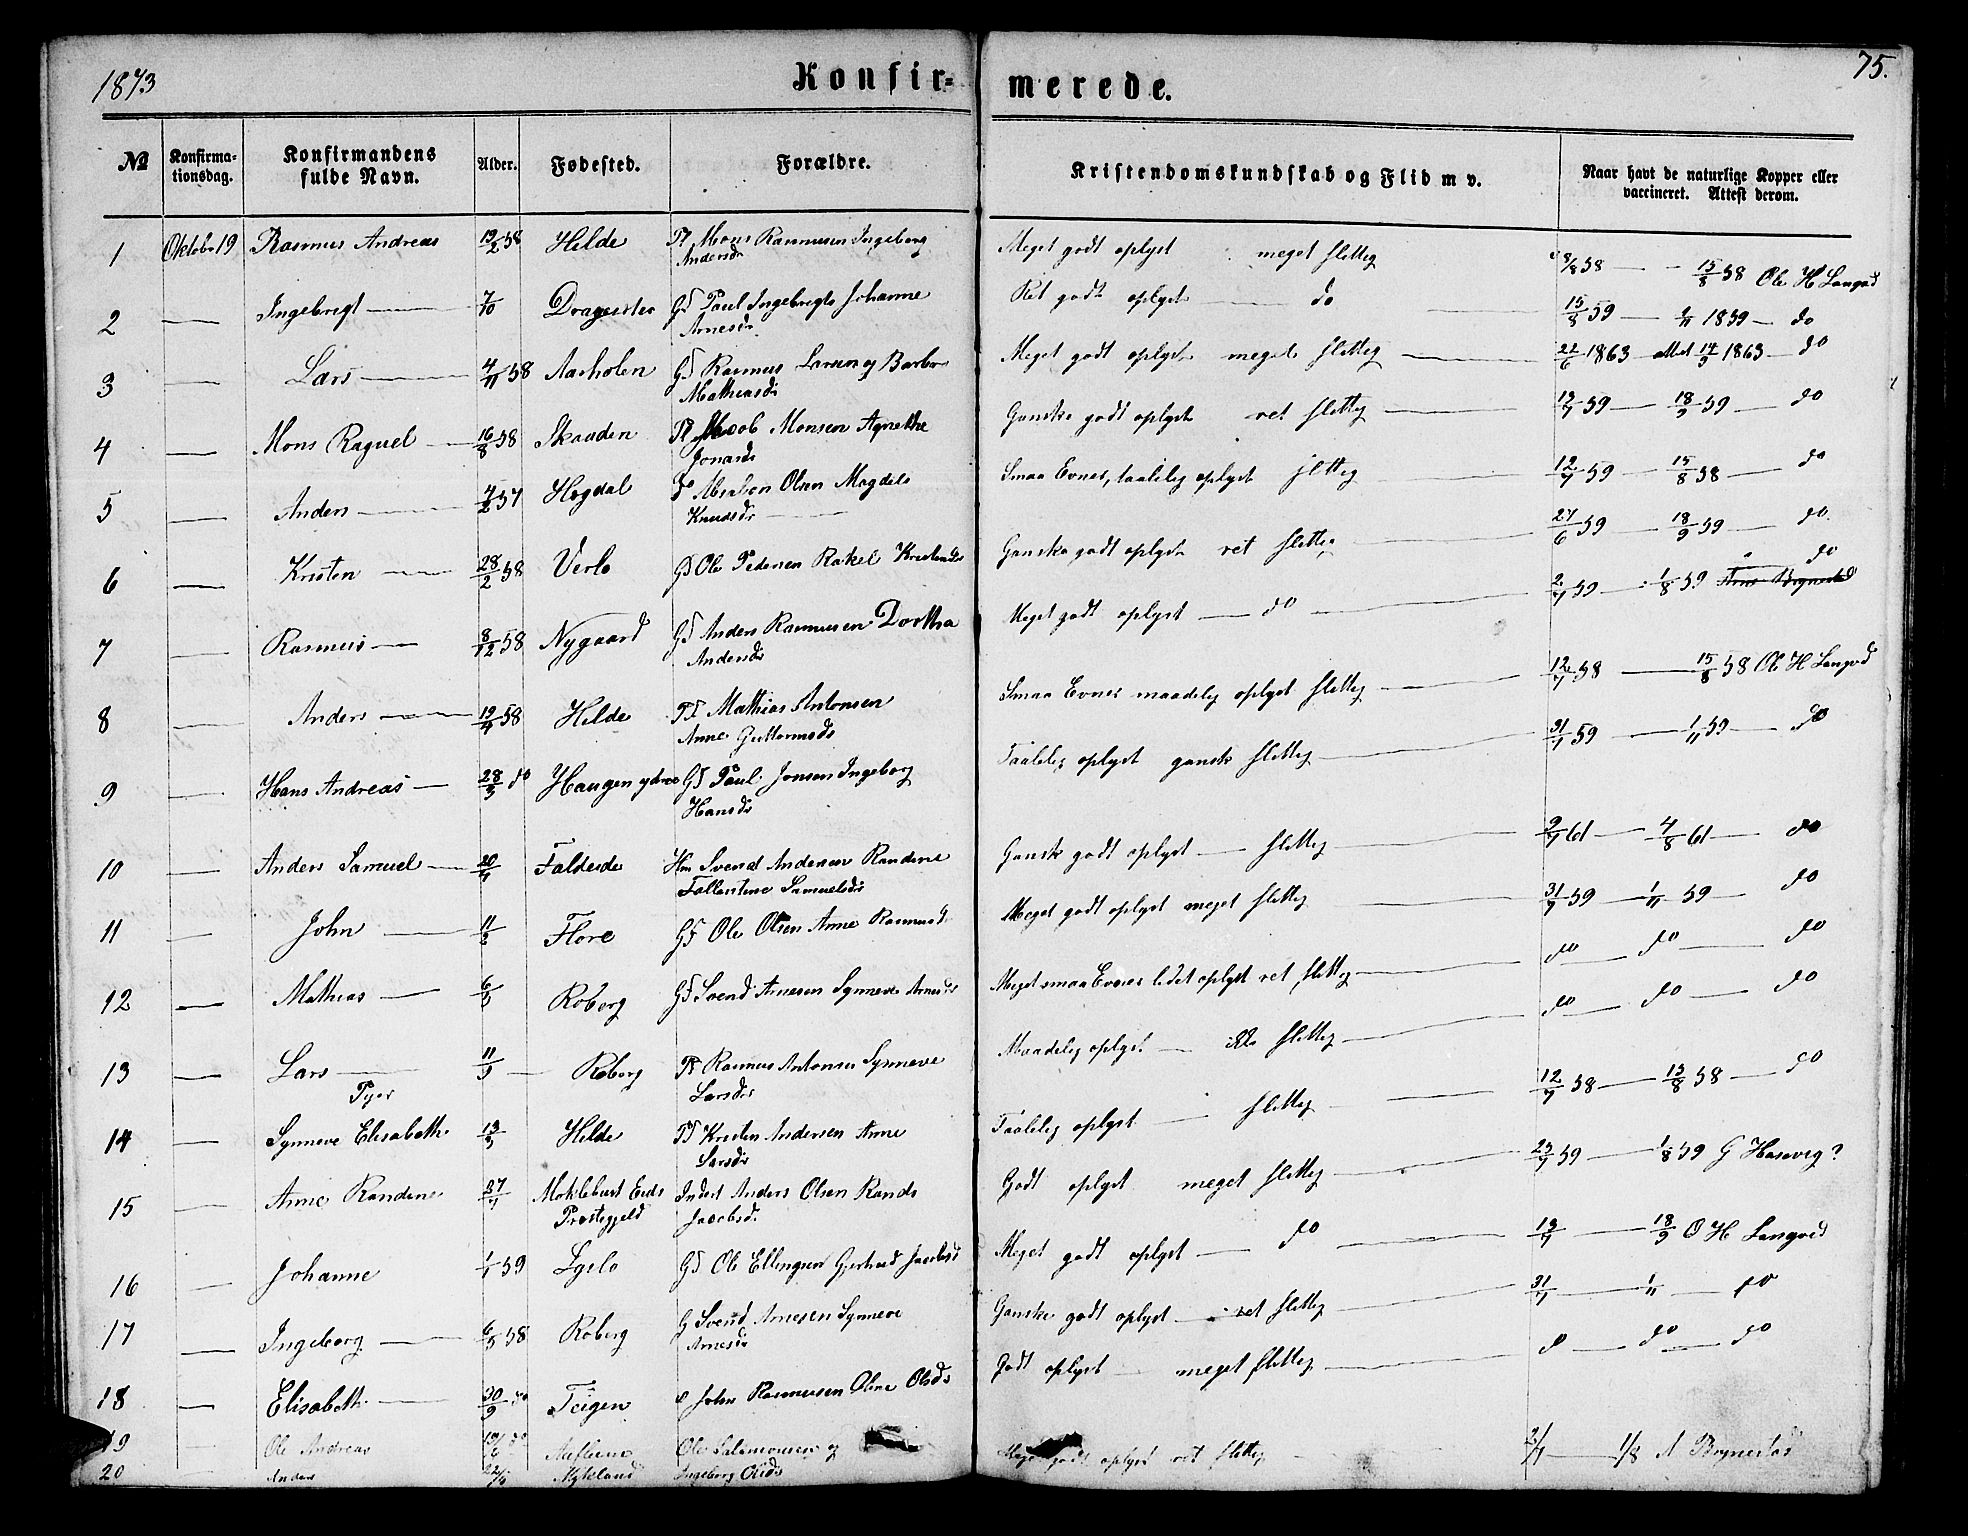 1873
Konfir-
merede.
75.
No
Konfirma-
tionsdag.
Konfirmandens
fulde Navn.
Alder.
Fødested.
Forældre.
Kristendomskundskab og Flid m v.
Naar havt de naturlige Kopper eller
vaccineret. Attest derom.
1 Oktobr 19 Rasmus Andreas 19/2 58 Hilde Pl Mons Rasmusen Ingeborg
Andersdr
Meget godt oplyst meget flittig 8/8 58 — 15/8 58 Ole H Langvd
2 — Ingebrigt — 7/10 Gd Paul Ingebrigts Johanne
Arnesdr
Ret godt oplyst — do 15/8 59 — 1/11 1859 — do
3 — Lars — 4/11 58 Aarholen Gd Rasmus Larsen og Barbro
Mathiasdr
Meget godt oplyst meget flittig — 22/6 1863 — attest 14/9 1863 — do
4 — Mons Raguel — 16/8 58 Skaaden Pl Jacob Monsen Agnethe
Jonasdr
Ganske godt oplyst ret flittig — 13/7 59 — 18/9 59 — do
5 — Anders — 4/2 57 Høgdal Absalon Olsen Magdele
Knudsdr
Smaa Evner, taalelig oplyst flittig — 12/7 59 — 15/8 58 — do
6 — Kristen — 28/2 58 Verlo Gd Ole Pedersen Rakel Kristensdr
Ganske godt oplyst ret flittig — 27/6 59 — 18/9 59 — do
7 — Rasmus — 8/12 58 Nygaard Gd Anders Rasmusen Dorthea
Andersdr
Meget godt oplyst — do — 2/7 59 — 1/8 59 do
8 — Anders — 19/4 58 Hilde Pl Mathias Antonsen
Anne Guttormsdr
Smaa Evner maadelig oplyst flittig — 12/7 58 — 15/8 58 Ole H Langvd
9 — Hans Andreas — 28/3 do Haugen ydree Gd Paul Jonsen Ingeborg
Hansdr
Taalelig oplyst ganske flittig — 31/7 59 — 1/11 59 — do
10 — Anders Samuel — 20/4 Faldeide Hm Svend Andersen Randine
Samuelsdr
Ganske godt oplyst — flittig — 9/7 61 — 4/8 61 — do
11 — John — 11/2 Flore Gd Ole Olsen Anne Rasmusd
Meget godt oplyst meget flittig — 31/7 59 — 1/11 59 — do
12 — Mathias — 6/5 Roberg Gd Svend Arnesen Synneve Arnesdr
Meget smaa Evner lidet oplyst ret flittig — do — do — do
13 — Lars — 11/5 — Roberg Pl Rasmus Antonsen Synneve
Larsdr
Maadelig oplyst — ikke flittig — do — do — do
Pger
14 — Synneve Elisabeth 13/3 Hilde Pl Kristen Andersen Anne
Larsdr
Taalelig oplyst — flittig — 12/7 58 — 15/8 58 — do
15 — Anne Randine 27/7 Myklebust Eids Inderst Anders Olsen Randi
Præstegjeld Jacobsdr
Godt oplyst meget flittig — 25/7 59 — 1/8 59 G Hasvig?
16 — Johanne 1/1 59 Igelø Gd Ole Ellingsen Gjertrud Jacobsd
Meget godt oplyst — do — 13/7 — 18/9 O H Langvd
17 — Ingeborg — 6/5 58 Roberg G Svend Arnesen Synneve
Arnesdr
Ganske godt oplyst — ret flittig — 31/7 — 1/11 — do
18 — Elisabeth — 30/9 do Teigen John Rasmusen Oline Olsdr
Godt oplyst — meget flittig — do — do — do
19 Ole Andreas do Ole Salamonsen og
Meget godt oplyst ret flittig — 1/8 A Brynestad
20 Anders Mykland Ingeborg Olsdr